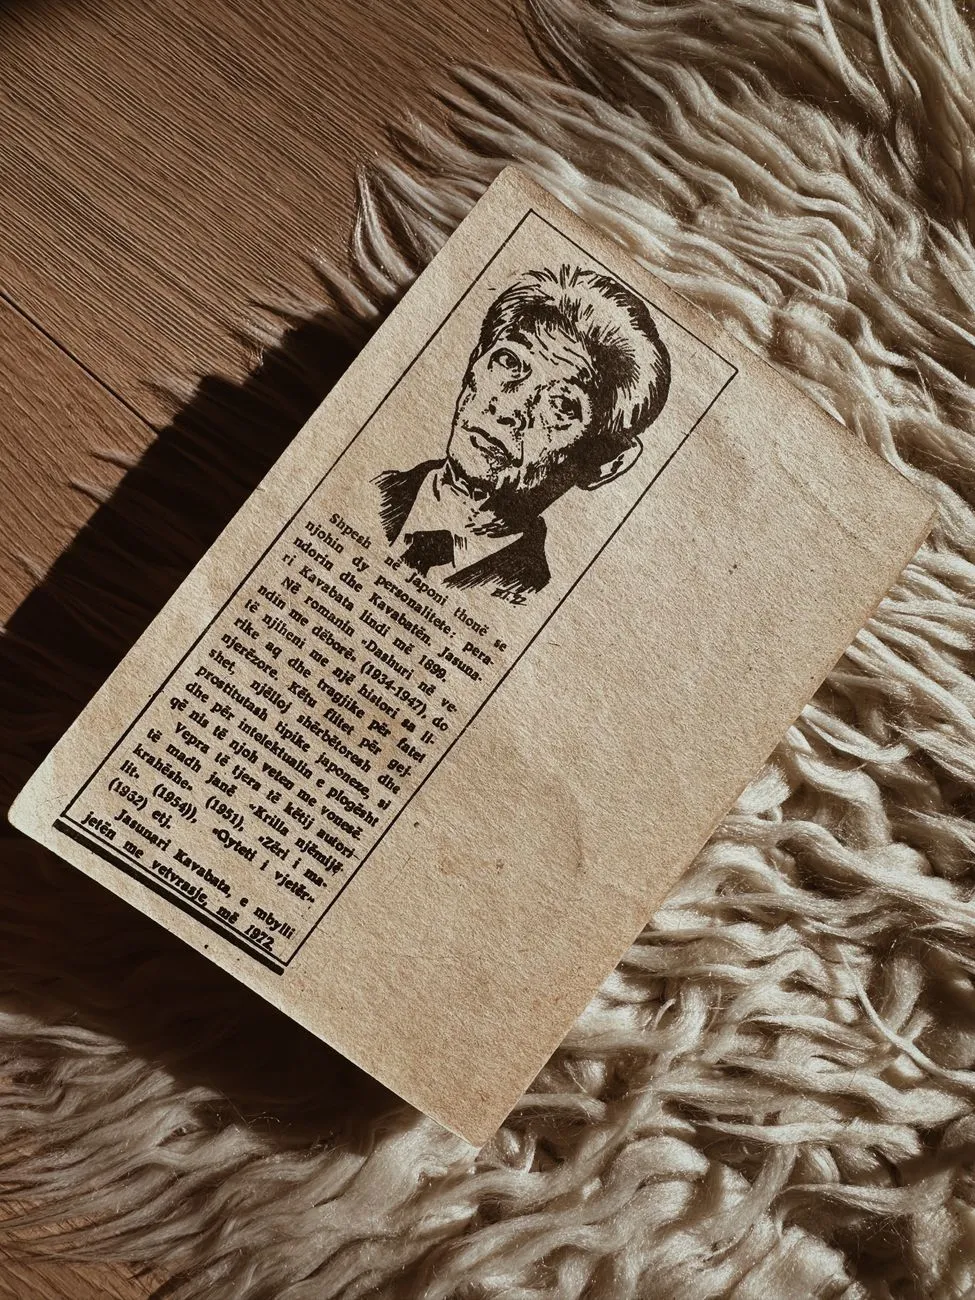 Shpesh në Japoni thonë se
njohin dy personalitete: pera-
ndorin dhe Kavabatën. Jasuna-
ri Kavabata lindi më 1899.
Në romanin «Dashuri në ve-
ndin me dëborë, (1934-1947), do
të njiheni me një histori sa li-
rike aq dhe tragjike për fatet
njerëzore. Këtu flitet për gej-
shet, njëlloj shërbëtoresh dhe
prostitutash tipike japoneze, si
dhe për intelektualin e plogësht
që nis të njoh veten me vonesë.
Vepra të tjera të këtij autori
të madh janë «Krilla njëmijë
krahëshe» (1951), «Zëri i ma-
lit» (1954)), «Qyteti i vjetër»
(1962) etj.
Jasunari Kavabata, e mbylli
jetën me vetvrasje, më 1972.